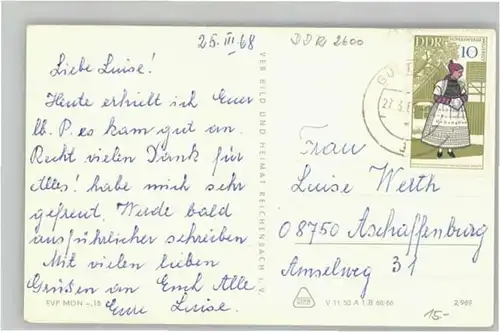 25. III 68
DDR 2600
Liebe Luise!
Heute erhielt ich Euer
lb. P. es kam gut an.
Recht vielen Dank für
Alles! habe mich sehr
gefreut. Werde bald
ausführlicher schreiben
Mit vielen lieben
Grüßen an Euch Alle
Eure Luise.
EVP MDN -,15
VEB BILD UND HEIMAT REICHENBACH i. V.
DDR
10
Frau
Luise Werth
08750 Aschaffenburg
Amselweg 31
V 11 50 A 1 B 66/66
2/969
15-